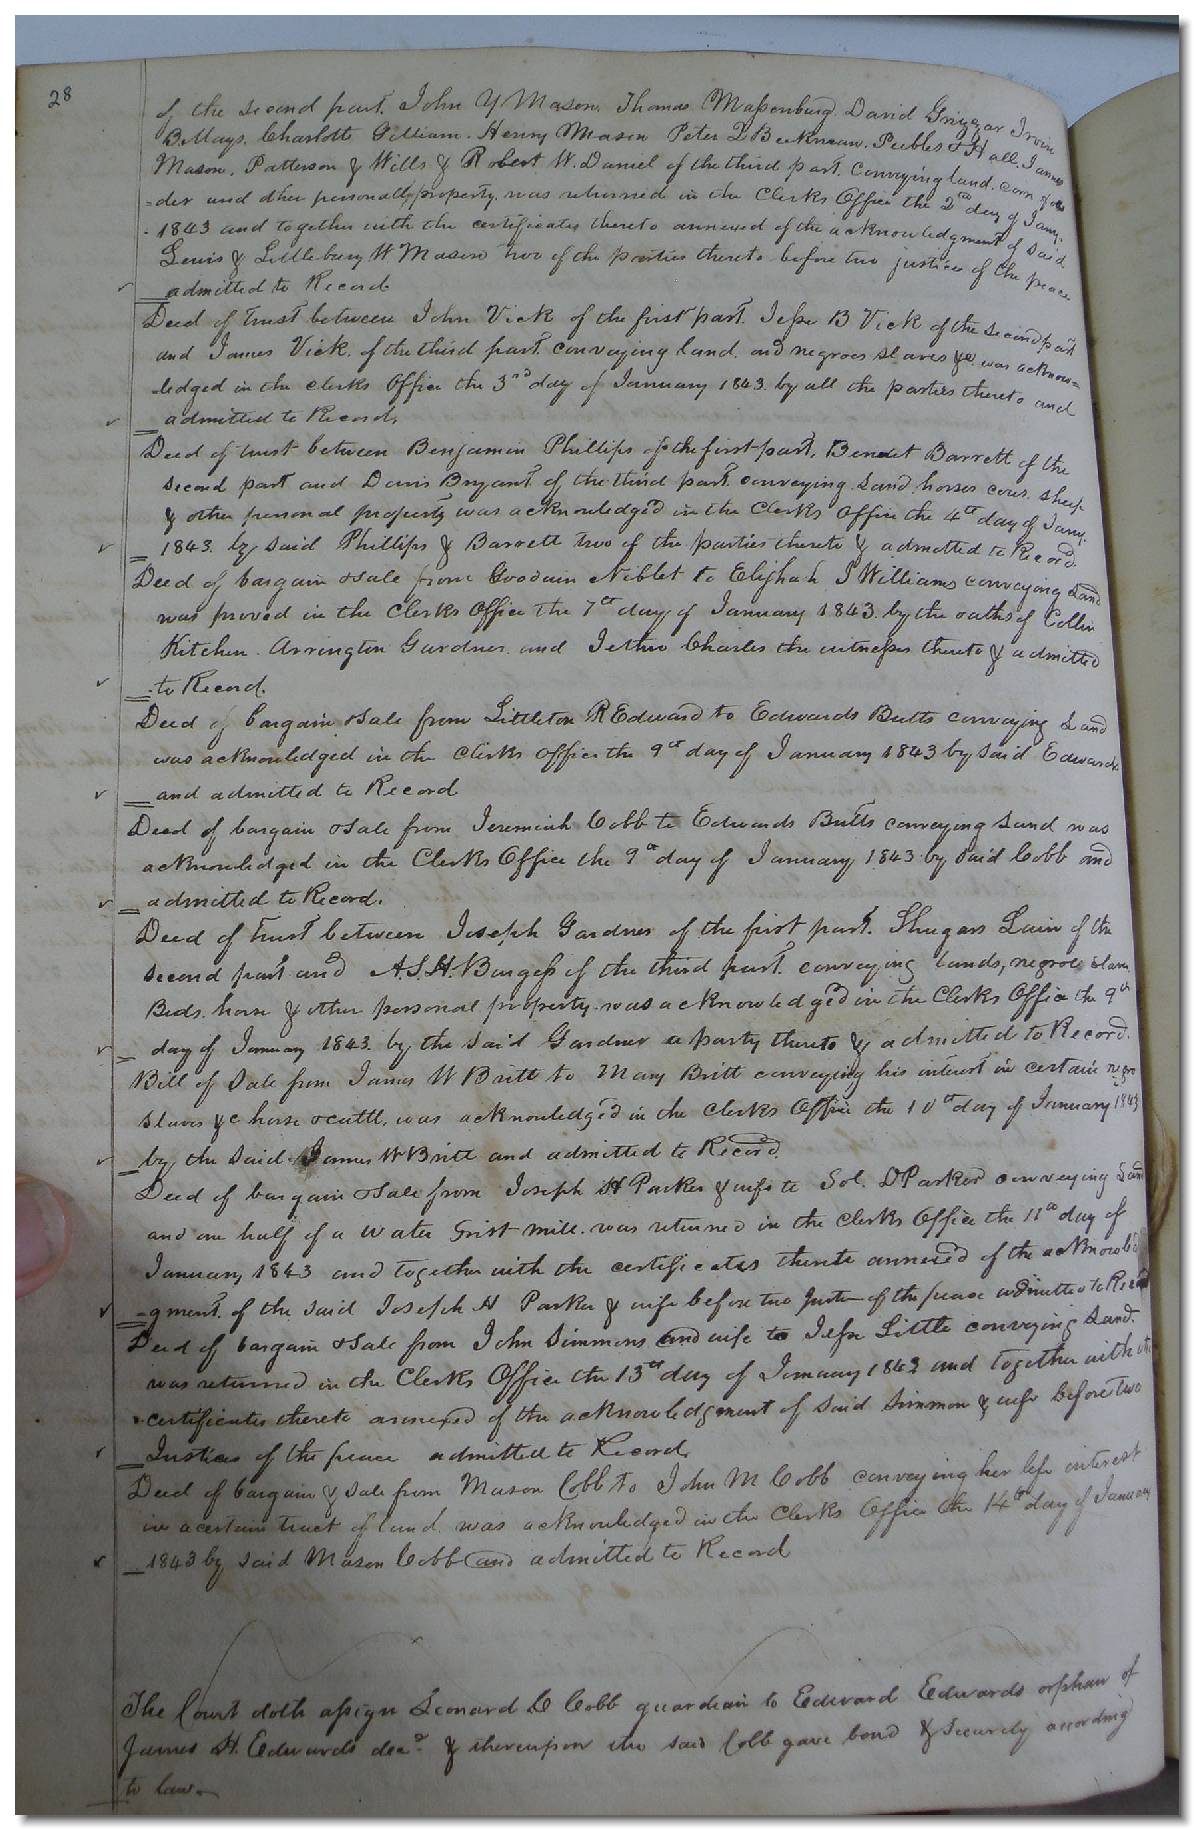 28
of the second part. John Y Mason. Thomas Massenburg. David Grizzar Irvin
B. Mays. Charlott Gilliam. Henry Mason Peter Beckman. Peebles & Hall. James
Mason. Patterson & Wills & Robert W. Daniel of the third part. Conveying land. corn
-der and other personally property. was returned in the Clerks Office the 2nd day of Jany.
- 1843 and together with the certificates thereto annexed of the acknowledgment of said
Lewis & Littlebury W Mason two of the parties thereto before two justices of the peace
admitted to Record
Deed of trust between John Vick of the first part. Jesse B Vick of the second part
and James Vick. of the third part. conveying land. and negroes slaves &c. was acknow=
-ledged in the clerks Office the 3rd day of January 1843. by all the parties thereto and
admitted to Record.
Deed of trust between Benjamin Phillips of the first part, Bennet Barrett of the
second part and Davis Bryant of the third part. conveying. Land horses cows. sheep
& other personal property was acknowledged in the Clerks Office the 4th day of Jany.
1843. by said Phillips & Barrett two of the parties thereto & admitted to Record
Deed of bargain & sale from Goodwin Niblet to Elijhah J Williams conveying Land
was proved in the Clerks Office the 7th day of January 1843. by the oaths of Collin
Kitchen. Arrington Gardner. and Jethro Charles the witnesses thereto & admitted
to Record.
Deed of bargain & sale from Littleton R Edward to Edwards Butts conveying Land
was acknowledged in the Clerks office the 9th day of January 1843 by said Edwards
and admitted to Record
Deed of bargain & sale from Jeremiah Cobb to Edwards Butts conveying Land was
acknowledged in the Clerks Office the 9th day of January 1843 by said Cobb and
admitted to Record.
Deed of trust between Joseph Gardner of the first part. Shugars Lain of the
second part and A.S.H. Burgess of the third part. conveying lands, negroe slaves
Beds. horse & other personal property. was acknowledged in the Clerks Office the 9th
day of January 1843. by the said Gardner a party thereto & admitted to Record.
Bill of Sale from James W Britt to Mary Britt conveying his interest in certain negro
slaves &c horse & cattle, was acknowledged in the Clerks Office the 10th day of January 1843
by the said James W Britt and admitted to Record.
Deed of bargain & sale from Joseph H Parker & wife to Sol. D Parker conveying Land
and one half of a water Grist mill. was returned in the Clerks Office the 11th day of
January 1843 and together with the certificates thereto annexed of the acknowled
-gment. of the said Joseph H Parker & wife before two Justices of the peace admitted to Record
Deed of bargain & sale from John Simmons and wife to Jesse Little conveying Land.
was returned in the Clerks Office the 13th day of January 1843 and together with the
certificates thereto annexed of the acknowledgment of said Simmon & wife before two
Justices of the peace admitted to Record.
Deed of bargain & sale from Mason Cobb to John M Cobb conveying her life interest
in a certain tract of land. was acknowledged in the Clerks Office the 14th day of January
1843 by said Mason Cobb and admitted to Record
The Court doth assign Leonard D Cobb guardian to Edward Edwards orphan of
James H. Edwards decd. & thereupon the said Cobb gave bond & Security according
to law.